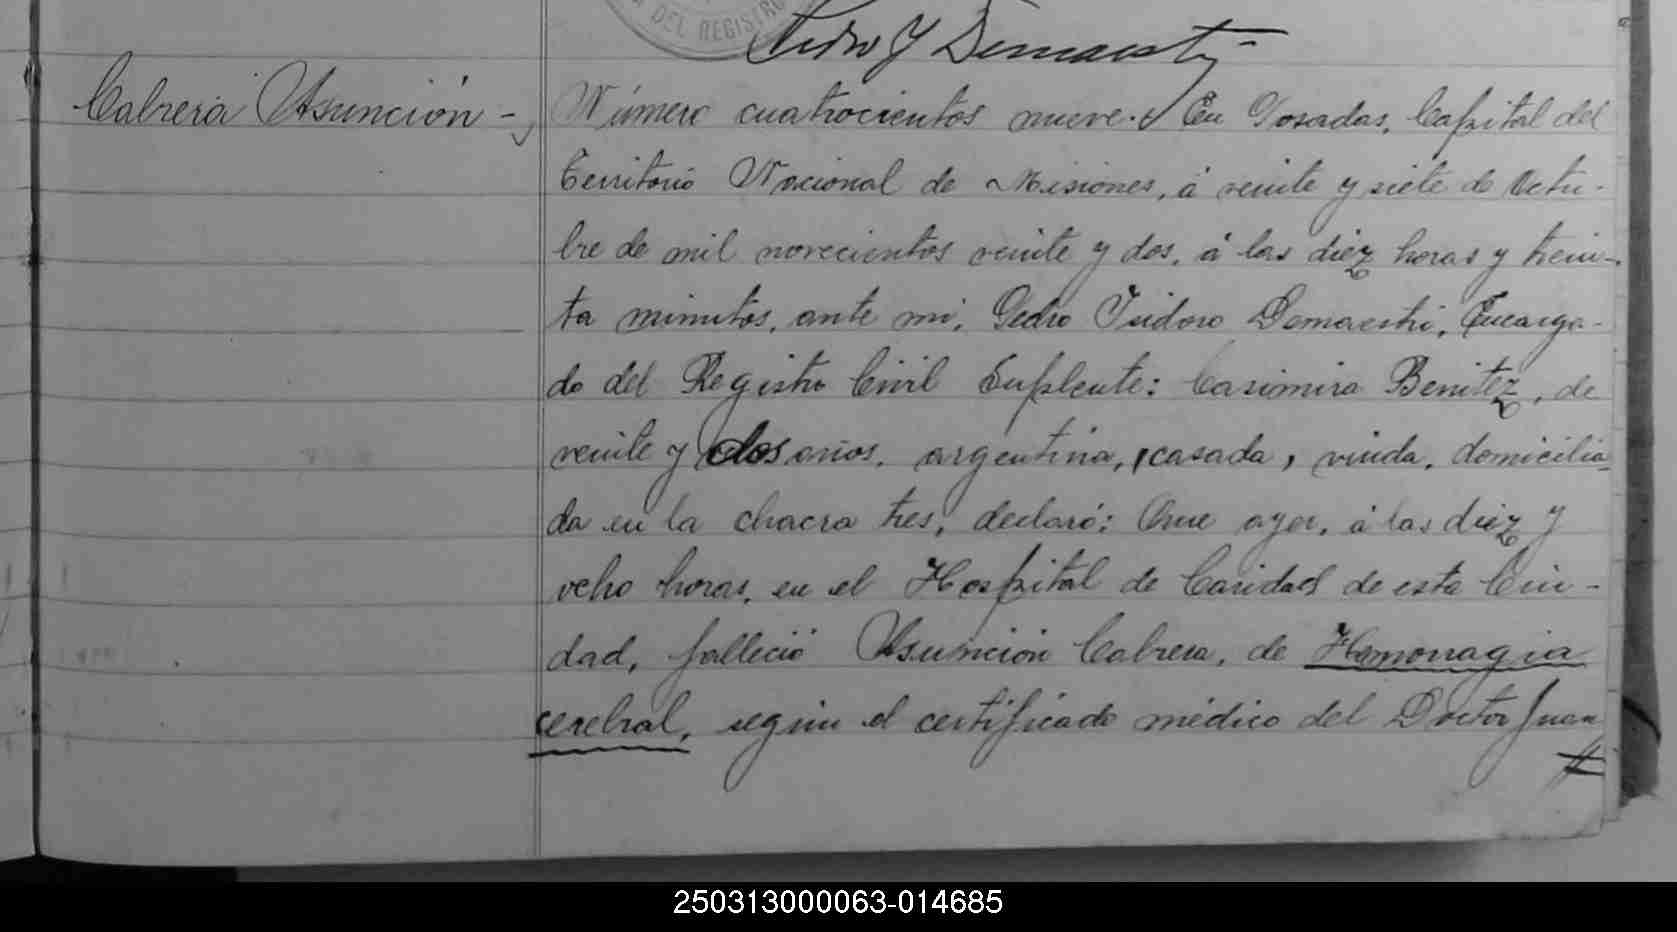 DEL REGISTRO
Pedro Y Demaestri
Cabrera Asunción -
Número cuatrocientos nueve. En Posadas, Capital del
Territorio Nacional de Misiones, á veinte y siete de Octu-
bre de mil novecientos veinte y dos, á las diez horas y trein-
ta minutos, ante mi, Pedro Isidoro Demaestri, Encarga-
do del Registro Civil Suplente: Casimira Benitez, de
veinte y dos años, argentina, casada, viuda, domicilia-
da en la chacra tres, declaró: Que ayer, á las diez y
ocho horas, en el Hospital de Caridad de esta Ciu-
dad, falleció Asunción Cabrera, de Hemorragia
cerebral, según el certificado médico del Doctor Juan
250313000063-014685